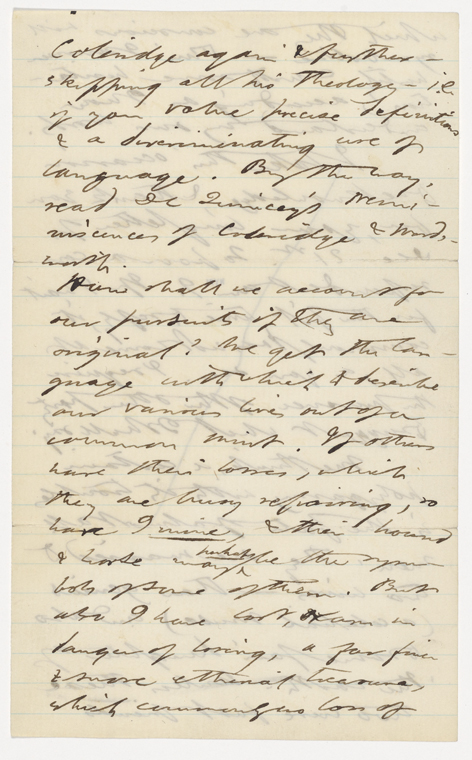 Coleridge again & further —
skipping all his theology — i.e.
if you value precise definitions
& a discriminating use of
language. By the way,
read De Quincey's Remi-
niscences of Coleridge & Words-
worth.
How shall we account for
our pursuits if they are
original? We get the lan-
guage with which to describe
our various lives out of a
common mint. If others
have their losses, which
they are busy repairing, so
have I mine, & their hound
& horse may perhaps be the sym-
bols of some of them. But
also I have lost, or am in
danger of losing, a far finer
& more etherial treasure,
which commonly no loss of